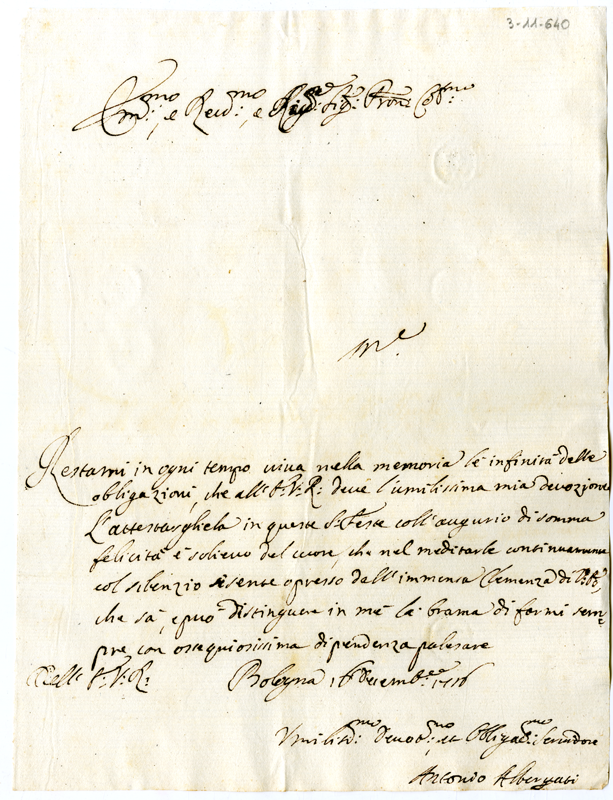 3-11-640
Em:mo, e Reu:mo, e Sig: Prone Col:mo
Restami in ogni tempo uiua nella memoria le infinità delle
obligazioni, che all' deue l'umilissima mia deuozione
L'attestarghela in queste S:te Feste coll'augurio di somma
felicità è solieuo del cuore, che nel meditarle continuamente
col silenzio si sente opresso dall'immensa Clemenza di
che sà, e può distinguere in mè la brama di farmi sem=
pre, con ossequiosissima dipendenza palesare
Bologna 16 Decembre 1716
Umiliss:mo Deuot:mo et Obligat:mo Seruidore
Antonio Albergati